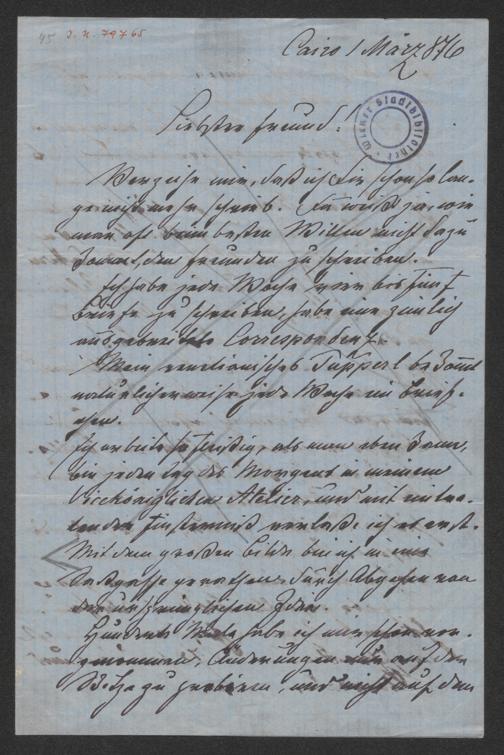 45 J. N. 79765
Cairo 1 März 876
Wiener Stadtbibliothek
Liebster Freund!
Verzeihe mir, daß ich Dir schon so lan-
ge nicht mehr schrieb. Du weißt ja, wie
man oft beim besten Willen nicht dazu
kommt, den Freunden zu schreiben.
Ich habe jede Woche vier bis fünf
Briefe zu schreiben, habe eine ziemlich
ausgebreitete Correspondenz.
Mein venetianisches Tupperl bekommt
natürlicherweise jede Woche ein Brief-
chen.
Ich arbeite so fleißig, als man eben kann,
bin jeden Tag des Morgens in meinem
Viceköniglichen Atelier, und mit eintre-
tender Finsterniß verlaße ich es erst.
Mit dem großen Bilde bin ich in eine
Saßgasse gerathen durch Abgehen von
der ursprünglichen Idee.
Hundert Male habe ich mir schon vor-
genommen, Änderungen nur auf der
Skitze zu probieren, und nicht auf dem